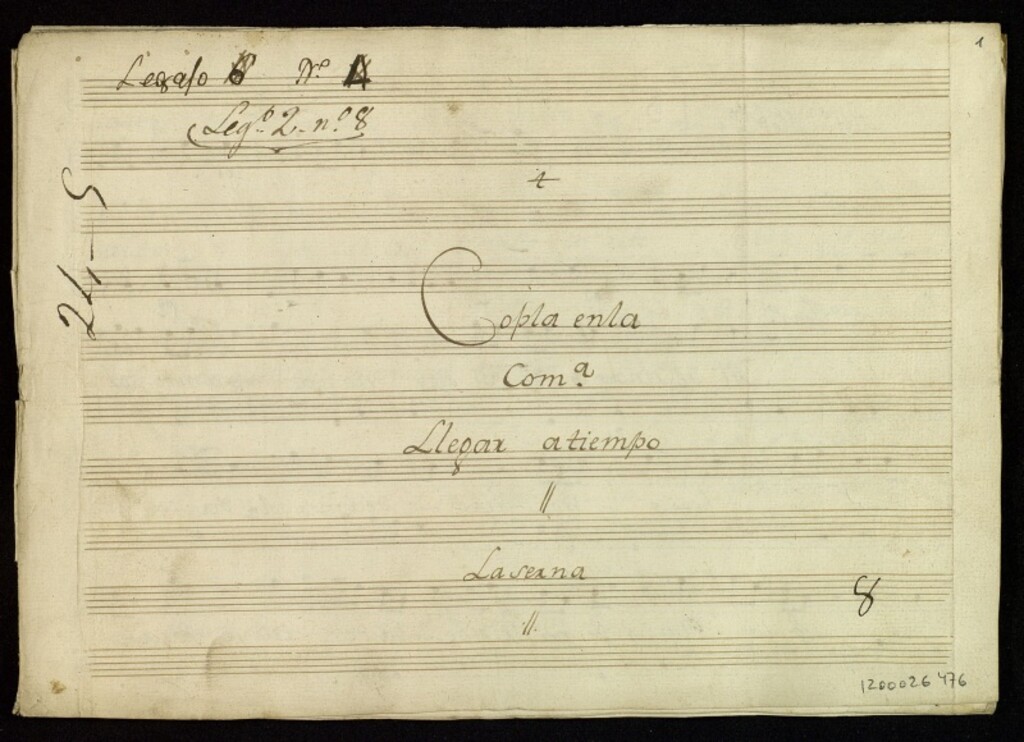 1
Legajo 6 Nº
Legº 2. nº 8
24-5
Copla enla
Comª
Llegar atiempo
//
Laserna
//
8
1200026476